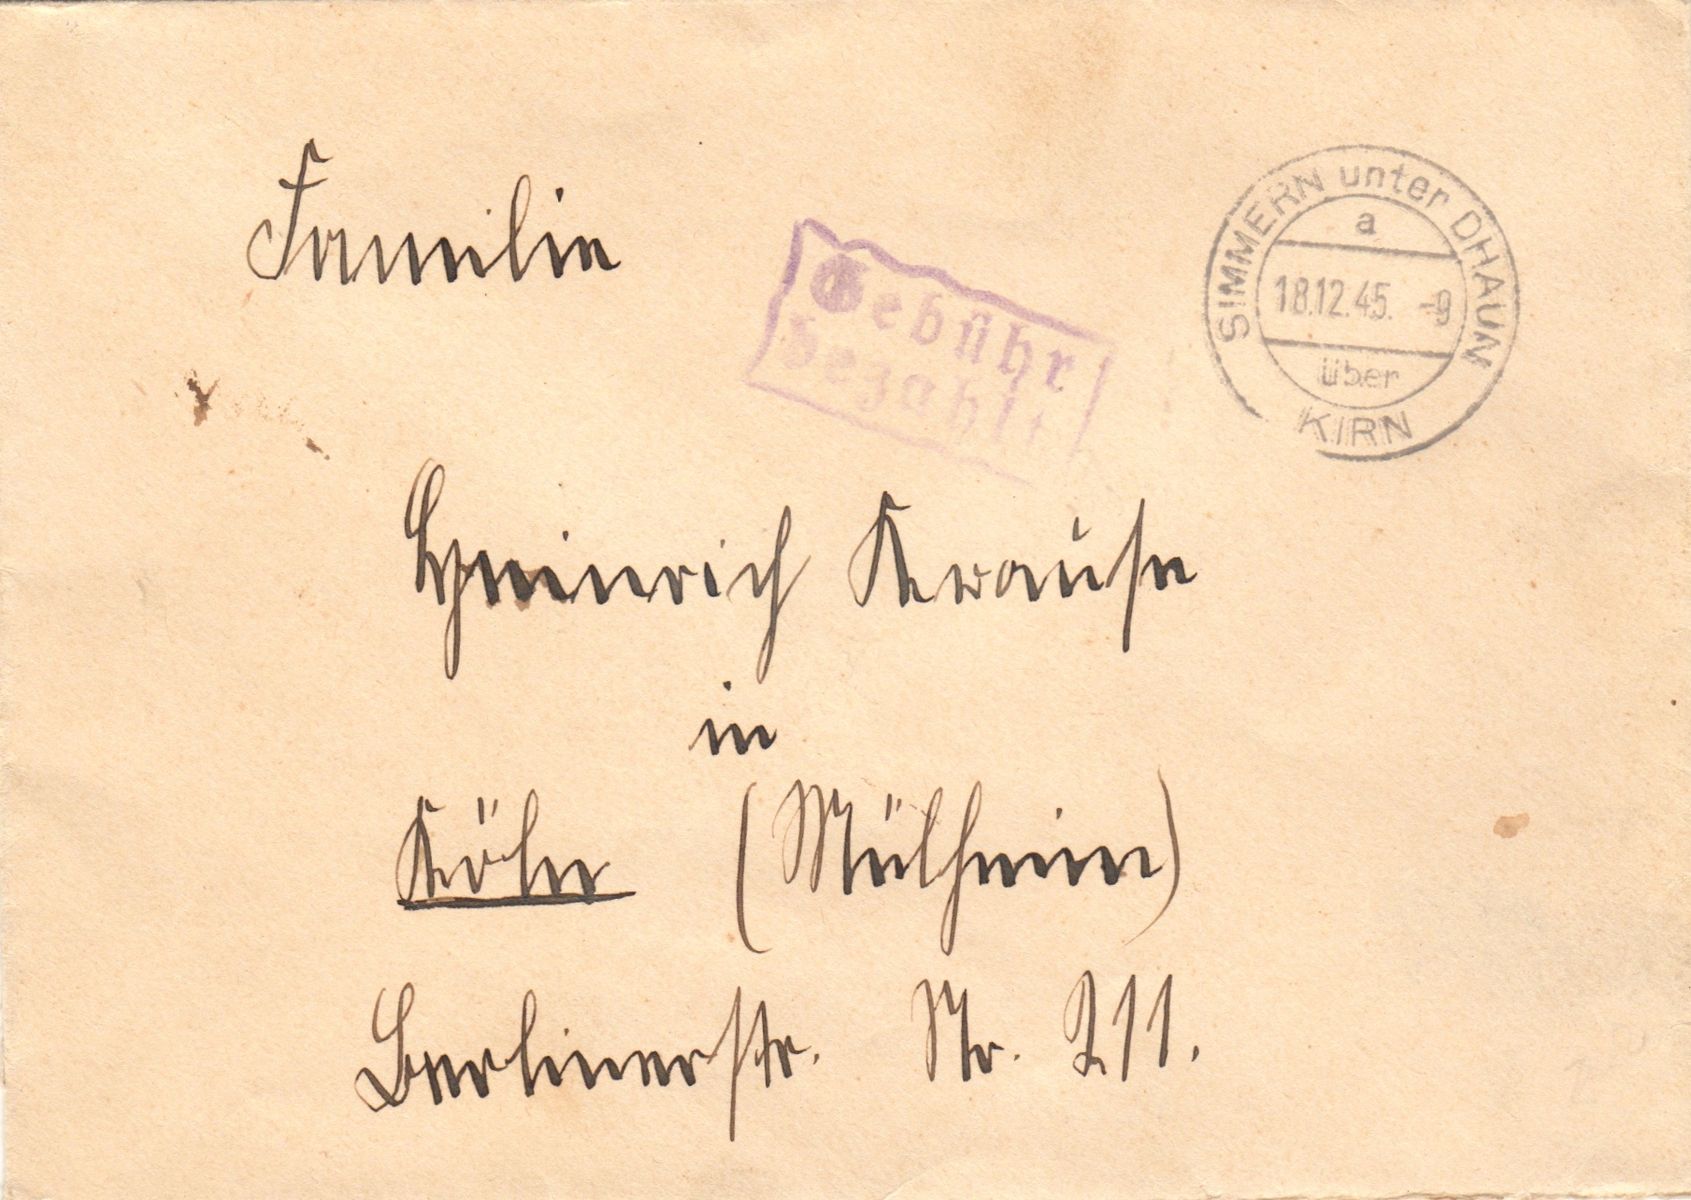 Familie
Gebühr
bezahlt
SIMMERN unter DHAUN
a
18.12.45. -9
über
KIRN
Heinrich Krause
in
Köln (Mülheim)
Berlinerstr. Nr. 211.